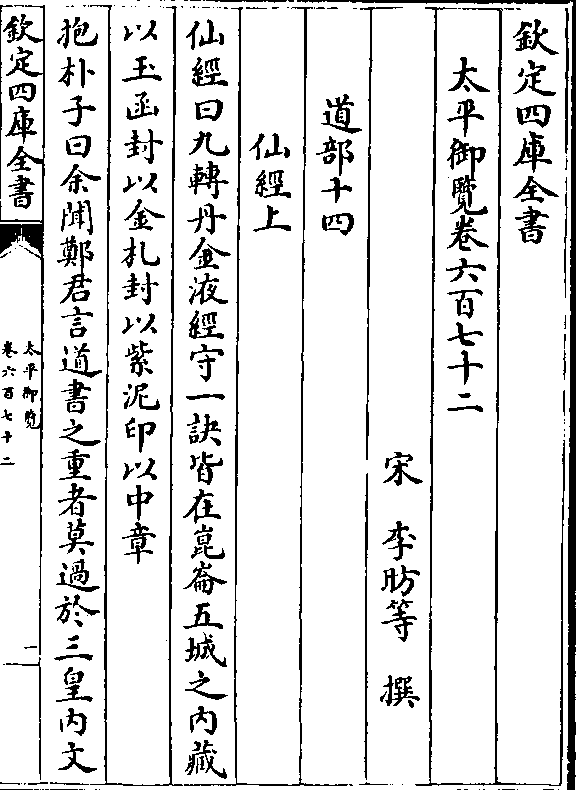 欽定四庫全書
太平御覽卷六百七十二
宋　李昉等　撰
道部十四
仙經上
仙經曰九轉丹金液經守一訣皆在崑崙五城之内藏
以玉函封以金札封以紫泥印以中章
抱朴子曰余聞鄭君言道書之重者莫過於三皇内文
欽定四庫全書
太平御覽
卷六百七十二
一